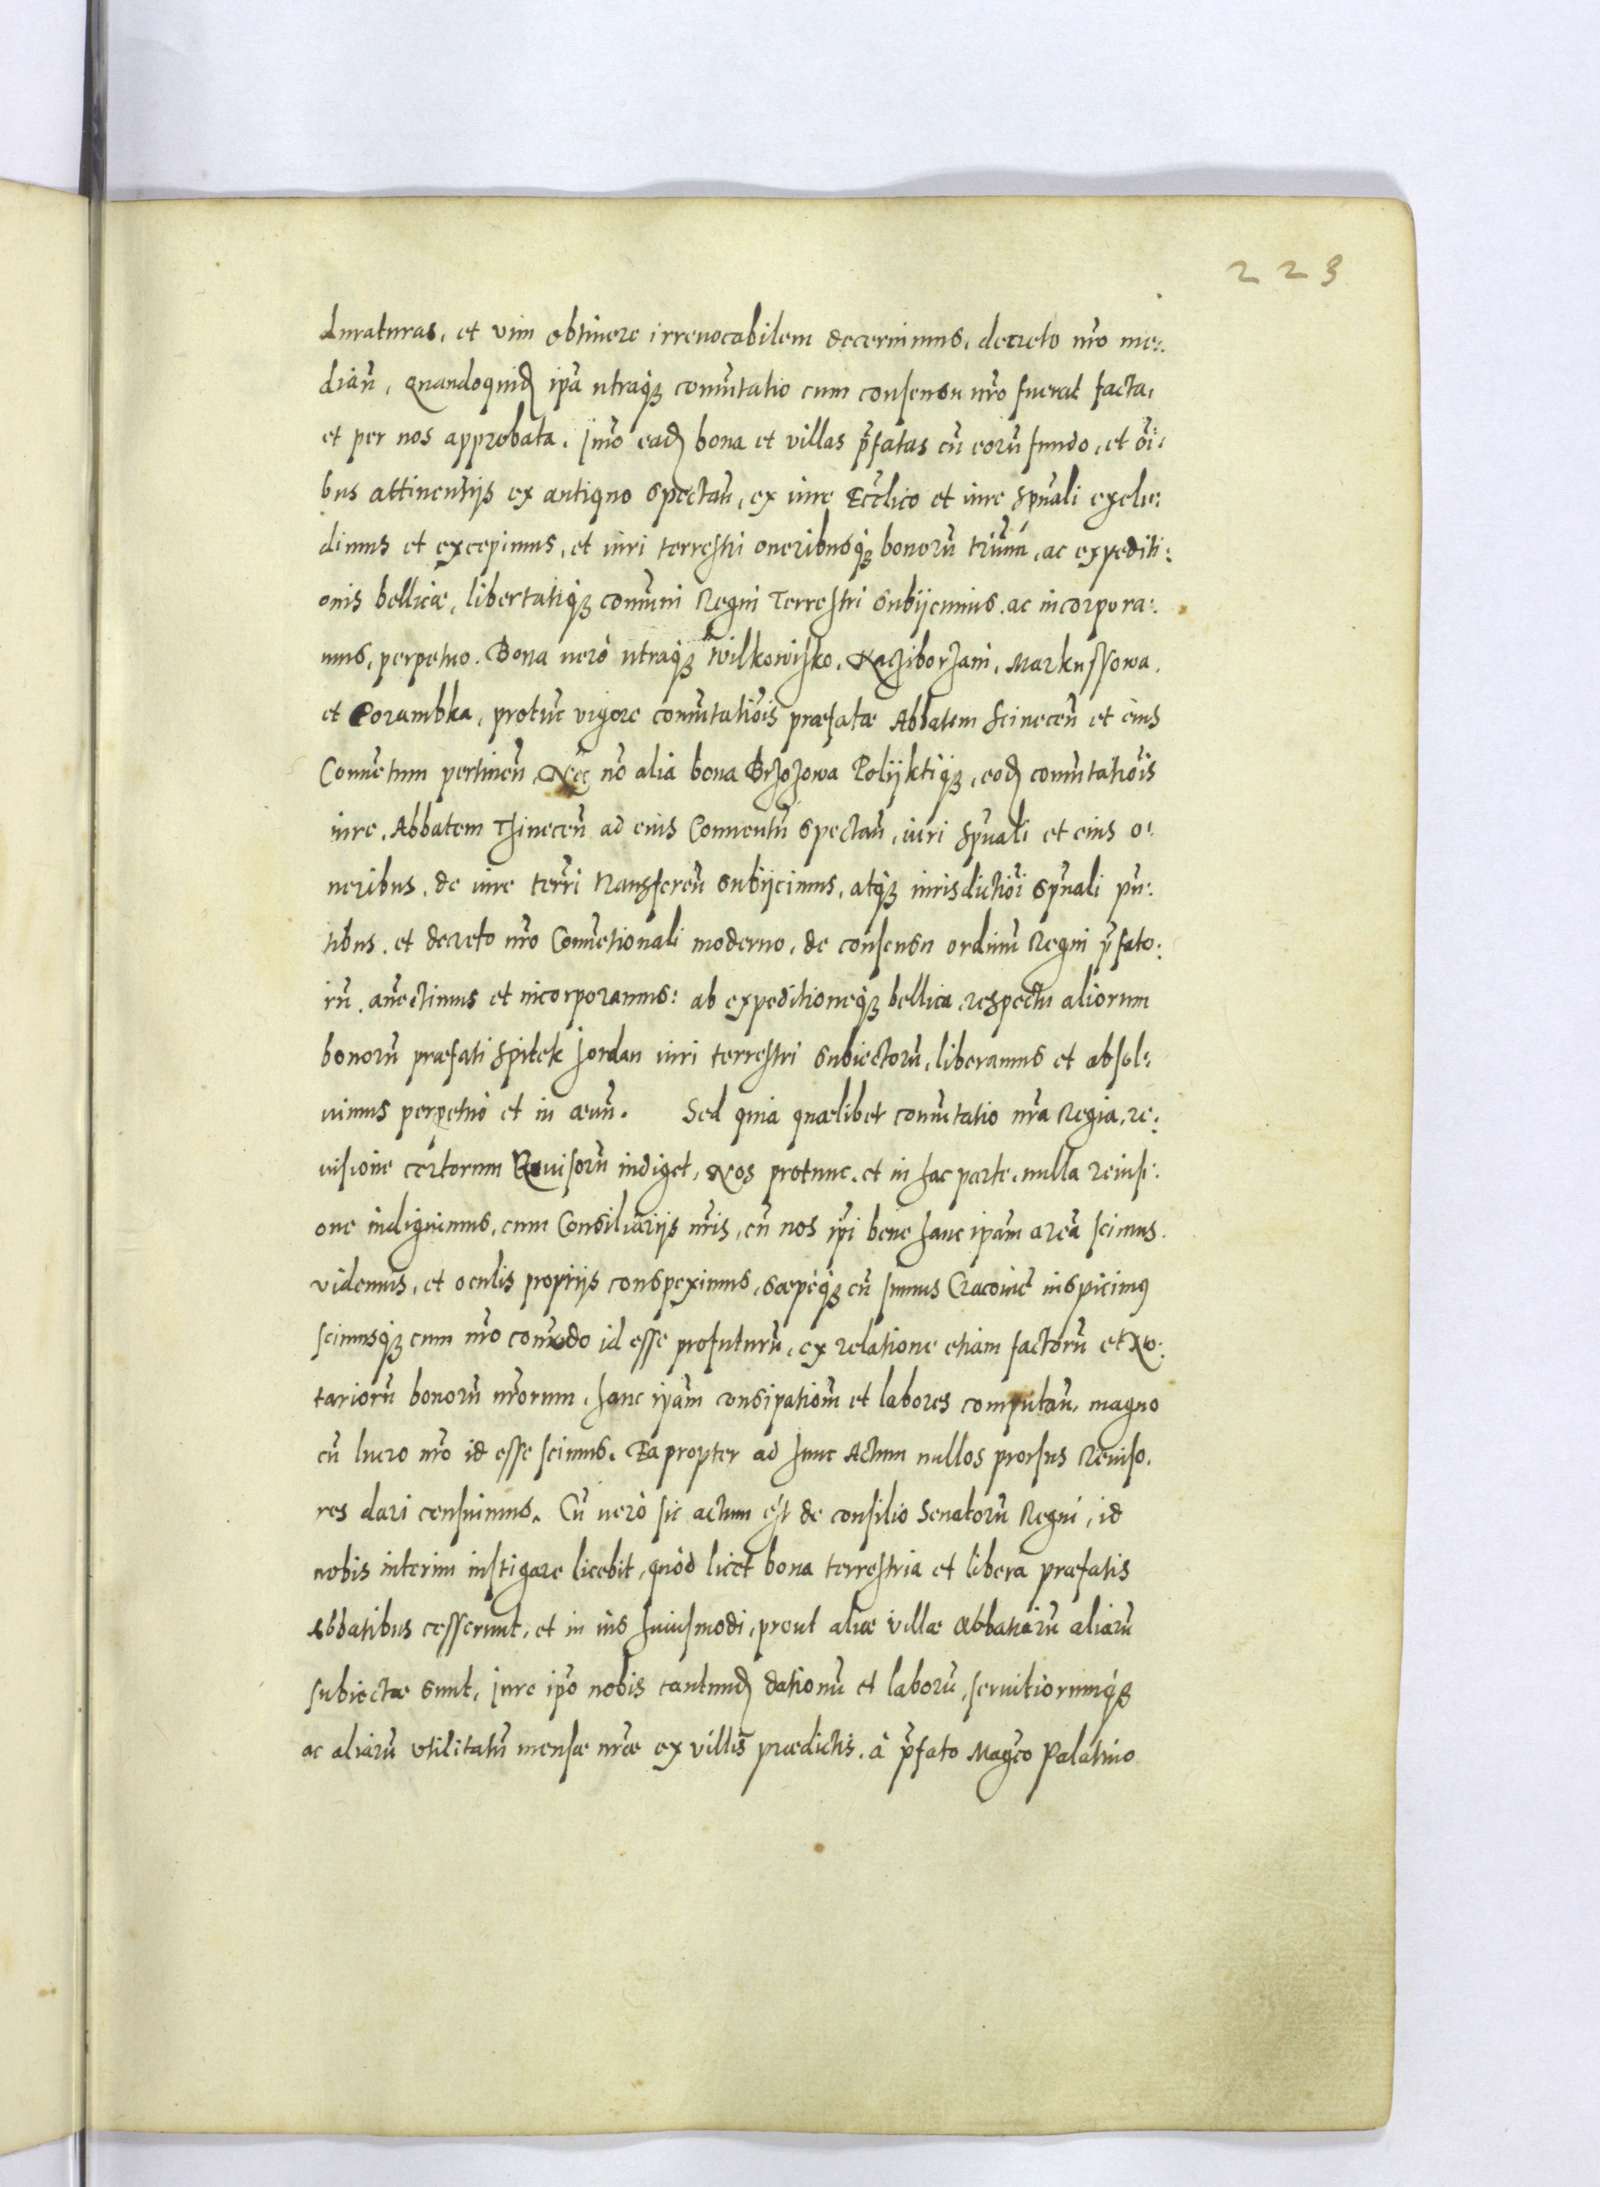 223
duraturas, et vim obtinere irreuocabilem decernimus, decreto nr̃o me:
diañ, quandoquid ipã utraq; comũtatio cum consensu nr̃o fuerat facta,
et per nos approbata. Jm̃o ead bona et villas p̃fatas cũ eorũ fundo, et õi:
bus attinentijs ex antiquo spectañ, ex iure Ecc̃lico et iure spũali exclu:
dimus et excepimus, et iuri terrestri oneribusq; bonorũ ac expediti:
onis bellicæ, libertatiq; com̃uni Regni Terrestri subijcimus. ac incorpora:
mus, perpetuo. Bona uerò utraq; Wilkowisko, Racziborzani, Markussowa,
et Porambka, protũc vigore com̃utatiõis præfatæ Abbatem Scineceñ et eius
Conuẽtum pertineñ, Nec nõ alia bona Brzozowa Polijktiq;, eod com̃utatiõis
iure, Abbatem Thineceñ ad eius Conuentũ spectañ, iuri spũali et eius o:
neribus, de iure terr̃i transfereñ subijcimus, atq; iurisdictiõi spũali pñ:
tibus, et decreto nr̃o Conuẽtionali moderno, de consensu ordinũ Regni p̃fato:
rũ, añectimus et incorporamus: ab expeditioneq; bellica, respectu aliorum
bonorũ præfati Spitek Jordan iuri terrestri subiectorũ, liberamus et absol:
uimus perpetuò et in æuũ. Sed quia quælibet com̃utatio nr̃a Regia, re:
uisione certorum Reuisorũ indiget, Nos protunc, et in hac parte, nulla reuisi:
one indiguimus, cum Consiliarijs nr̃is, cũ nos ip̃i bene hanc ipãm areã scimus.
videmus, et oculis proprijs conspeximus, sæpeq; cũ sumus Cracouiẽ inspicimus
scimusq; cum nr̃o com̃odo id esse profuturũ, ex relatione etiam factorũ et No:
tariorũ bonorũ nr̃orum, hanc ipãm consipatioñ et labores computañ, magno
cũ lucro nr̃o id esse scimus. Ea propter ad hunc Actum nullos prorsus Reuiso.
res dari censuimus. Cũ uerò sic actum est de consilio Senatorũ Regni, id
nobis interim instigare licebit, quòd licet bona terrestria et libera præfatis
Abbatibus cesserunt, et in ius huiusmodi, prout aliæ villæ Abbatiarũ aliarũ
subiectæ sunt, iure ip̃o nobis tantund dationũ et laborũ, seruitiorumq;
ac aliarũ vtilitatũ mensæ nr̃æ ex villis prædictis, à p̃fato Mag̃co Palatino